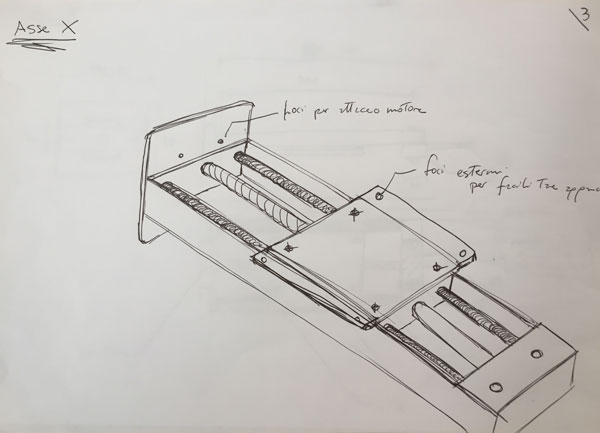 Asse X
3
fori per attacco motore
fori esterni
per facilitare